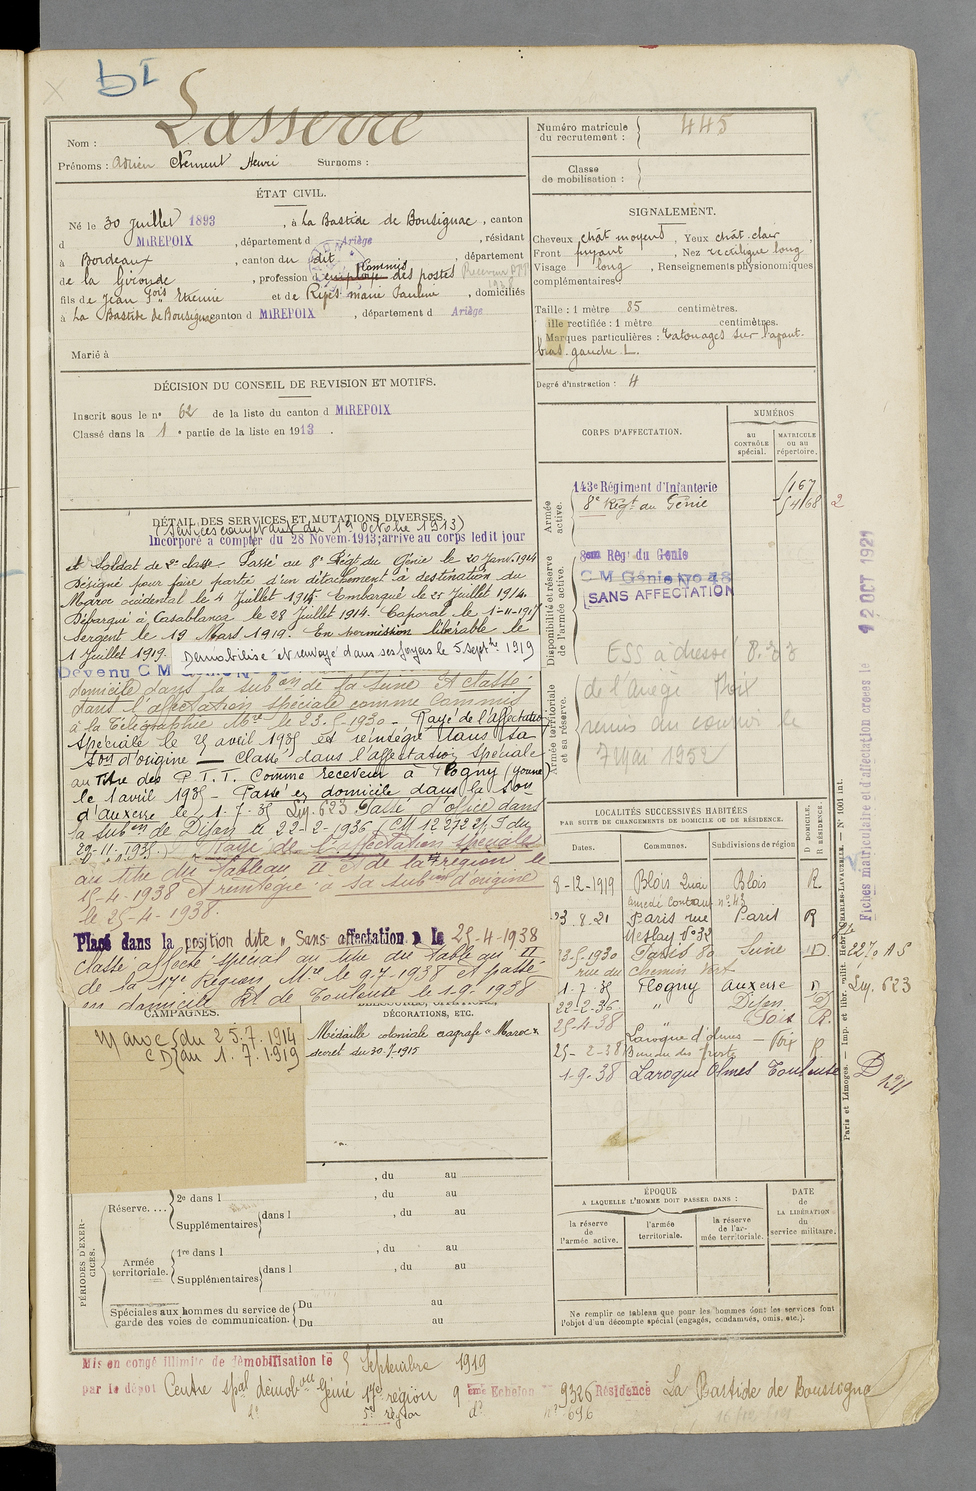 Lasserre
Nom :
Prénoms : Adrien Clément Henri Surnoms :
ÉTAT CIVIL.
Né le 30 juillet 1893, à La Bastide de Bousignac, canton
d MIREPOIX, département d Ariège, résidant
à Bordeaux, canton du dit, département
de la Gironde, profession d'employé Commis des postes Receveur PTT
fils de Jean Fois Etienne et de Ripés marie Pauline, domiciliés
à La Bastide de Bousignac canton d MIREPOIX, département d Ariège
Marié à
DÉCISION DU CONSEIL DE REVISION ET MOTIFS.
Inscrit sous le n° 62 de la liste du canton d MIREPOIX
Classé dans la 1e partie de la liste en 1913.
DÉTAIL DES SERVICES ET MUTATIONS DIVERSES.
(Services comptant du 1er Octobre 1913)
Incorporé à compter du 28 Novem. 1913; arrivé au corps ledit jour
et Soldat de 2e classe. Passé au 8e Régt du Génie le 20 Janv. 1914
Désigné pour faire partie d'un détachement à destination du
Maroc occidental le 4 Juillet 1914. Embarqué le 25 Juillet 1914.
Débarqué à Casablanca le 28 Juillet 1914. Caporal le 1-11-1917
Sergent le 19 Mars 1919. En permission libérable le
1 Juillet 1919. Démobilisé et renvoyé dans ses foyers le 5 septbre 1919
Devenu C M
domicile dans la subon de la Seine et classé
dans l'affectation spéciale comme Commis
à la Télégraphie Mre le 23.5.1930 - Rayé de l'affectation
spéciale le 25 avril 1935 et réintégré dans sa
son d'origine — Classé dans l'affectation spéciale
au titre des P.T.T. Comme receveur à Flogny (Yonne)
le 1 avril 1935 - Passé en domicile dans la son
d'Auxerre le 1.7.35 Lég. 623 Passé d'office dans
la subon de Dijon le 22-2-1936 (CM 12272 2/1 S du
29-11-1935.) Rayé de l'affectation spéciale
au titre du tableau et de la région le
15-4-1938 et réintégré à sa subon d'origine
le 25-4-1938.
Placé dans la position dite « Sans affectation » le 25-4-1938
Classé affecté spécial au titre du Table au II
de la 17e Région Mre le 9.7.1938 et passé
en domicile Bt de Toulouse le 1-9-1938
CAMPAGNES.
Maroc { du 25.7.1914
CD { au 1.7.1919
DÉCORATIONS, ETC.
Médaille coloniale avec agrafe « Maroc »
décret du 30-7-1915
, du au
Réserve.... 2e dans l , du au
Supplémentaires dans l , du au
Armée territoriale. 1re dans l , du au
Supplémentaires dans l , du au
PÉRIODES D'EXERCICES.
Spéciales aux hommes du service de garde des voies de communication. Du au
Du au
Numéro matricule du recrutement : 445
Classe de mobilisation :
SIGNALEMENT.
Cheveux chât moyens, Yeux chât. clair,
Front fuyant, Nez rectiligne long
Visage long, Renseignements physionomiques
complémentaires :
Taille : 1 mètre 85 centimètres.
ille rectifiée : 1 mètre centimètres.
Marques particulières : tatouages sur l'avant-
bras gauche L.
Degré d'instruction : 4
CORPS D'AFFECTATION.
NUMÉROS
au CONTRÔLE spécial.
MATRICULE ou au répertoire.
Armée active.
143e Régiment d'Infanterie 167
8e Régt du Génie 4168
2
Disponibilité et réserve de l'armée active.
8em Rég. du Génie
C M Génie No 48
SANS AFFECTATION
ESS adressé
Armée territoriale et sa réserve.
de l'Ariège Foix
remis au courrier le
7 Mai 1952
LOCALITÉS SUCCESSIVES HABITÉES
PAR SUITE DE CHANGEMENTS DE DOMICILE OU DE RÉSIDENCE.
Dates. Communes. Subdivisions de région D. DOMICILE. R. RÉSIDENCE.
8-12-1919 Blois Quai Blois R.
n° 43
23.8.21 Paris rue Paris R
Meslay n° 32
23-5-1930 Paris 80 Seine D. 227. A S
rue du Chemin Vert
1.7.35 Flogny Auxerre D Lég. 623
22-2-36 " Dijon D
25-4-38 " Foix R.
25-2-38 Laroque d'olmes — Foix R
Bureau des Postes
1-9-38 Laroque Olmes Toulouse D 1211
ÉPOQUE
A LAQUELLE L'HOMME DOIT PASSER DANS :
la réserve de l'armée active. l'armée territoriale. la réserve de l'armée territoriale.
DATE de LA LIBÉRATION du service militaire.
Ne remplir ce tableau que pour les hommes dont les services font
l'objet d'un décompte spécial (engagés, condamnés, omis, etc.).
Paris et Limoges. — Imp. et libr. milit. Henri CHARLES-LAVAUZELLE. — N° 1001 int.
Fiches matriculaire et d'affectation créées le 12 OCT 1921
Mis en congé illimité de démobilisation le 5 Septembre 1919
par le dépôt Centre spal démobon Génie 17e région 9 ème Echelon n° 9326 Résidence La Bastide de Boussignac
d° 5e région d° n° 696